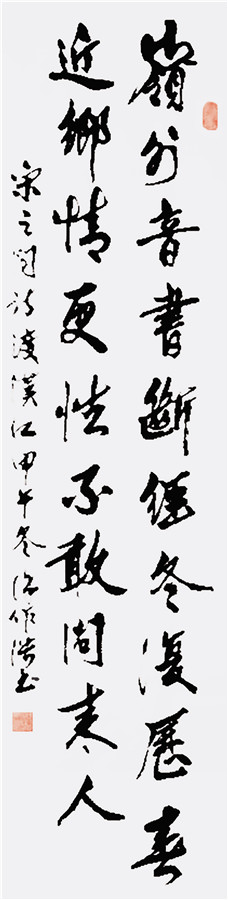 嶺外音書斷經冬復歷春
近鄉情更怯不敢問來人
宋之問詩渡漢江甲午冬